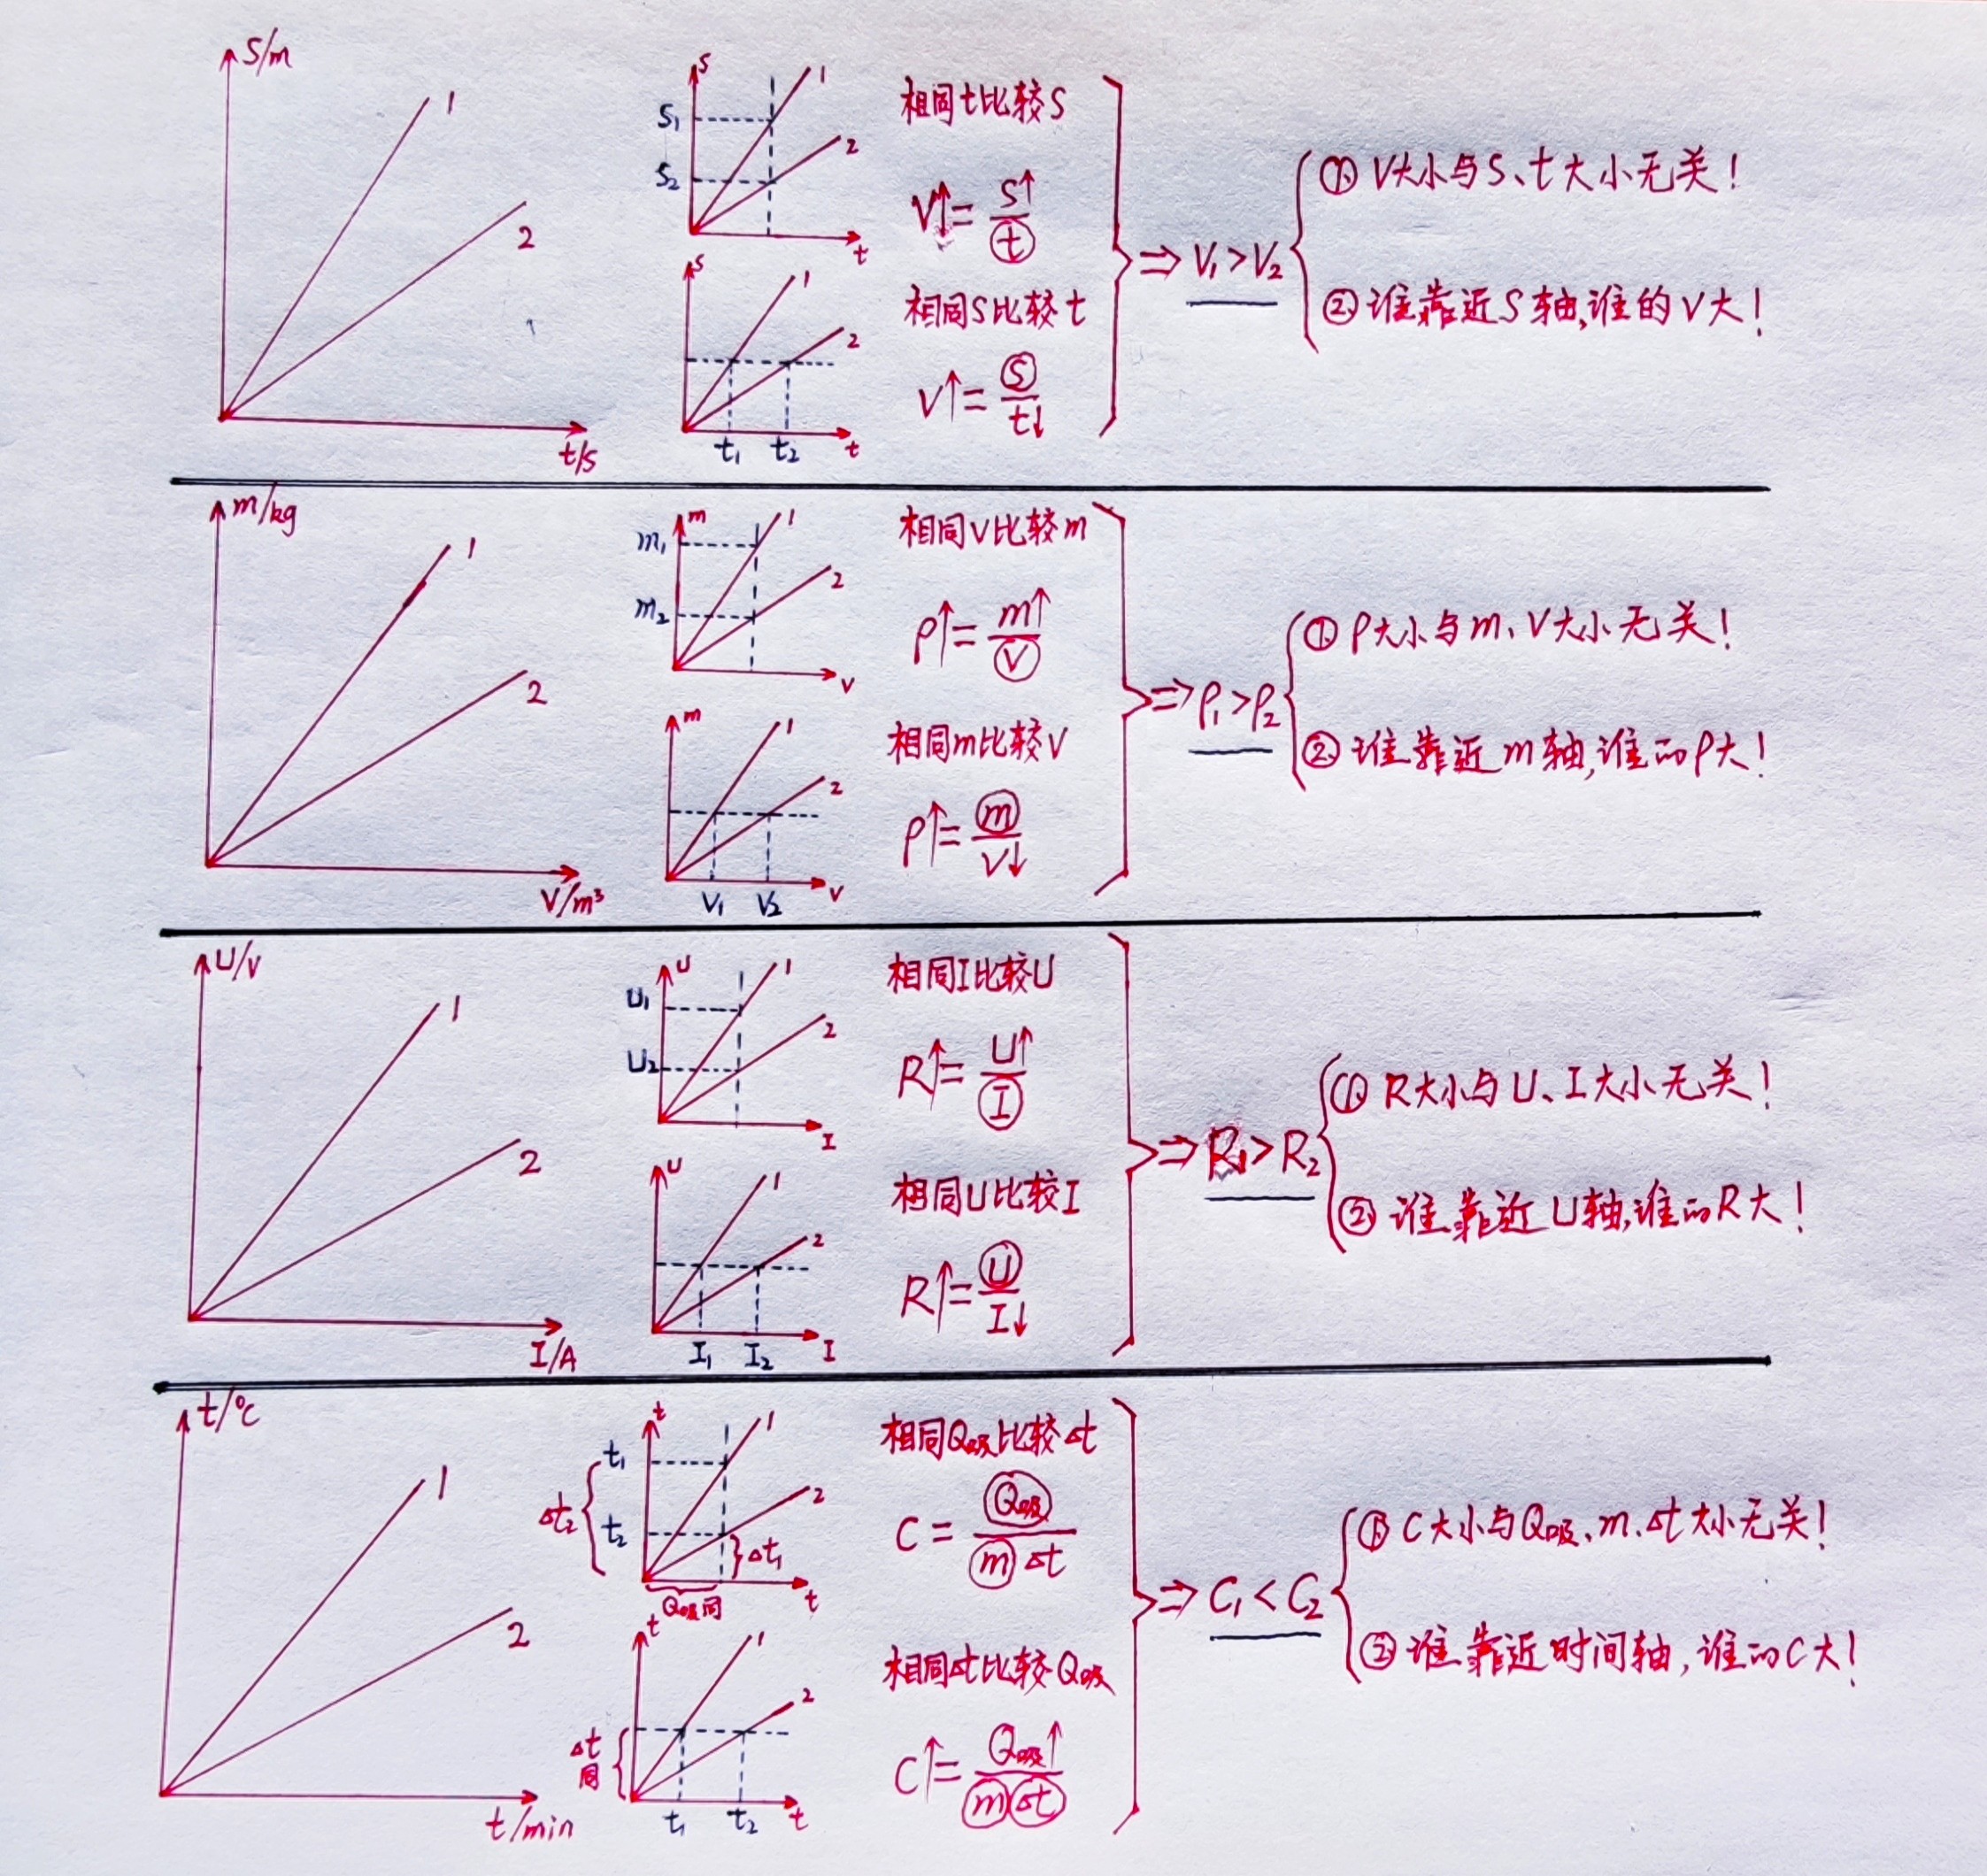 S/m
1
2
t/s
S
S₁
S₂
1
2
t
S
1
2
t₁ t₂ t
相同t比较S
V↑=S↑/t
相同S比较t
V↑=S/t↓
⇒V₁>V₂
① V大小与S、t大小无关!
② 谁靠近S轴,谁的V大!
m/kg
1
2
V/m³
m
m₁
m₂
1
2
V
m
1
2
V₁ V₂ V
相同V比较m
ρ↑=m↑/V
相同m比较V
ρ↑=m/V↓
⇒ρ₁>ρ₂
① ρ大小与m、V大小无关!
② 谁靠近m轴,谁的ρ大!
U/V
1
2
I/A
U
U₁
U₂
1
2
I
U
1
2
I₁ I₂ I
相同I比较U
R↑=U↑/I
相同U比较I
R↑=U/I↓
⇒R₁>R₂
① R大小与U、I大小无关!
② 谁靠近U轴,谁的R大!
t/℃
1
2
t/min
t
t₁
Δt₂
t₂
1
2
Δt₁
Q吸同
t
t
1
2
Δt
同
t₁ t₂ t
相同Q吸比较Δt
C=Q吸/mΔt
相同Δt比较Q吸
C↑=Q吸↑/mΔt
⇒C₁<C₂
① C大小与Q吸、m、Δt大小无关!
② 谁靠近时间轴,谁的C大!